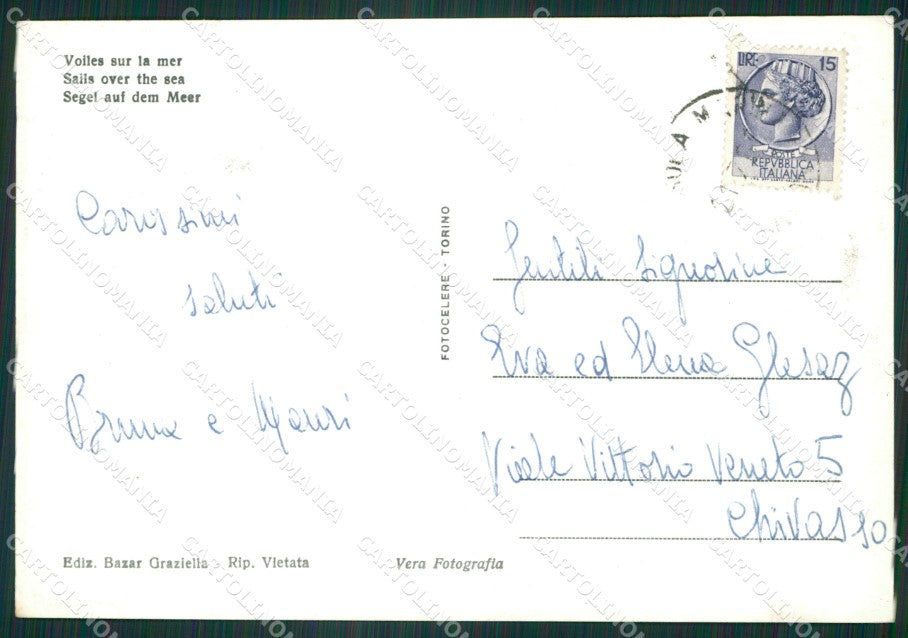 Voiles sur la mer
Sails over the sea
Segel auf dem Meer
LIRE 15
POSTE
REPVBBLICA
ITALIANA
Carissimi
saluti
Bruna e Mauri
FOTOCELERE - TORINO
Gentili Signorine
Eva ed Elena Glesaz
Viale Vittorio Veneto 5
Chivasso
Ediz. Bazar Graziella - Rip. Vietata
Vera Fotografia
CARTOLINOMANIA